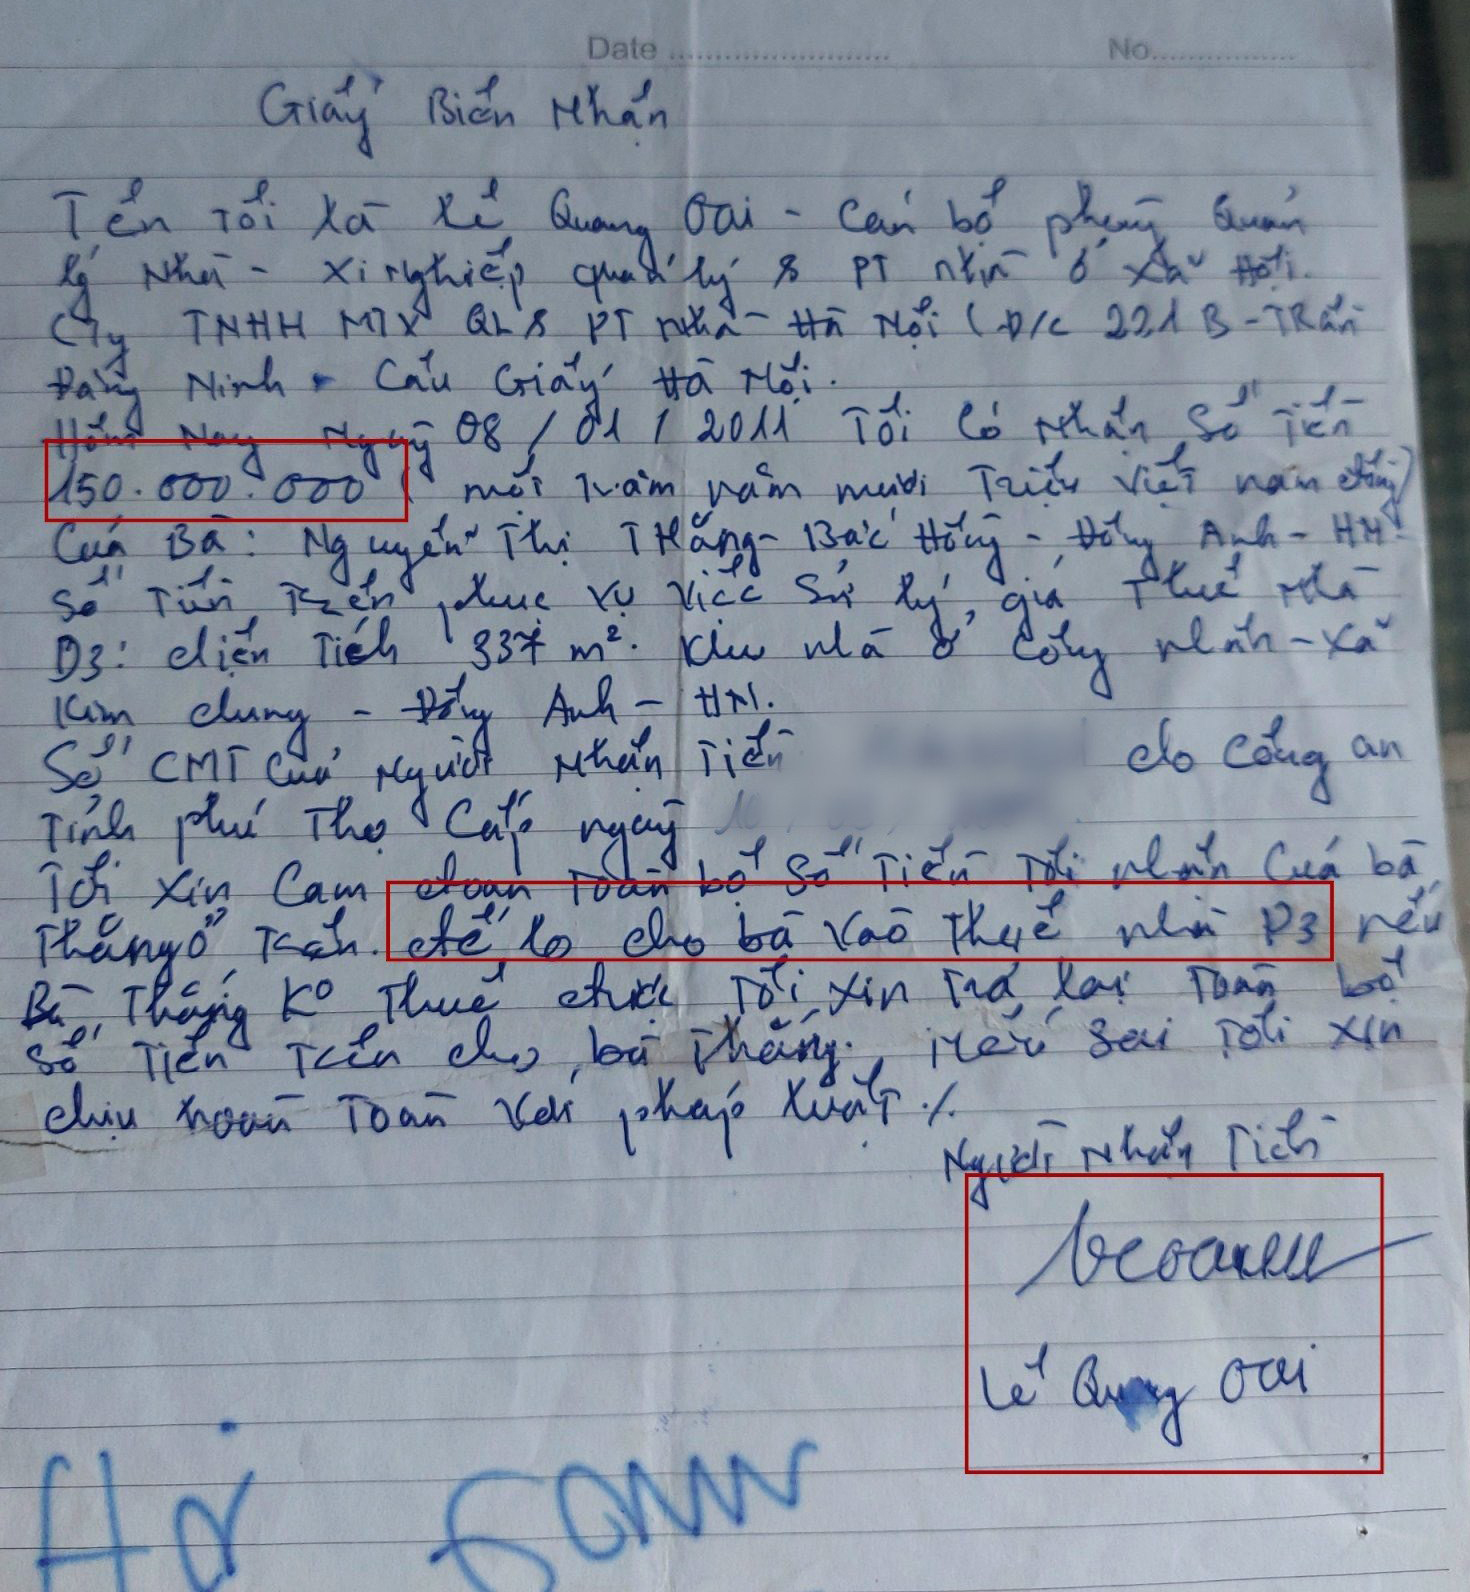 Date ........................ No................
Giấy Biên Nhận
Tên tôi là Lê Quang Oai - Cán bộ phòng Quản
lý Nhà - Xí nghiệp quản lý & PT nhà ở xã Hội.
Cty TNHH MTV QL & PT nhà Hà Nội ( Đ/c 221 B - Trần
Đăng Ninh - Cầu Giấy Hà Nội.
Hôm Nay Ngày 08 / 01 / 2011 Tôi có nhận số tiền
150.000.000 ( một trăm năm mươi triệu Việt nam đồng)
Của Bà: Nguyễn Thị Thắng - Bắc Hồng - Đông Anh - HN.
Số tiền trên phục vụ việc sử lý, giá thuê nhà
D3: diện tích 337 m². Khu nhà ở công nhân - xã
Kim chung - Đông Anh - HN.
Số CMT của người nhận tiền do công an
tỉnh phú thọ cấp ngày
Tôi xin cam đoan toàn bộ số tiền tôi nhận của bà
Thắng ở trên. để lo cho bà vào thuê nhà D3 nếu
Bà Thắng Ko thuê được tôi xin trả lại toàn bộ
số tiền trên cho bà Thắng. nếu sai tôi xin
chịu hoàn toàn với pháp luật ./.
Người nhận tiền
Lê Quang Oai